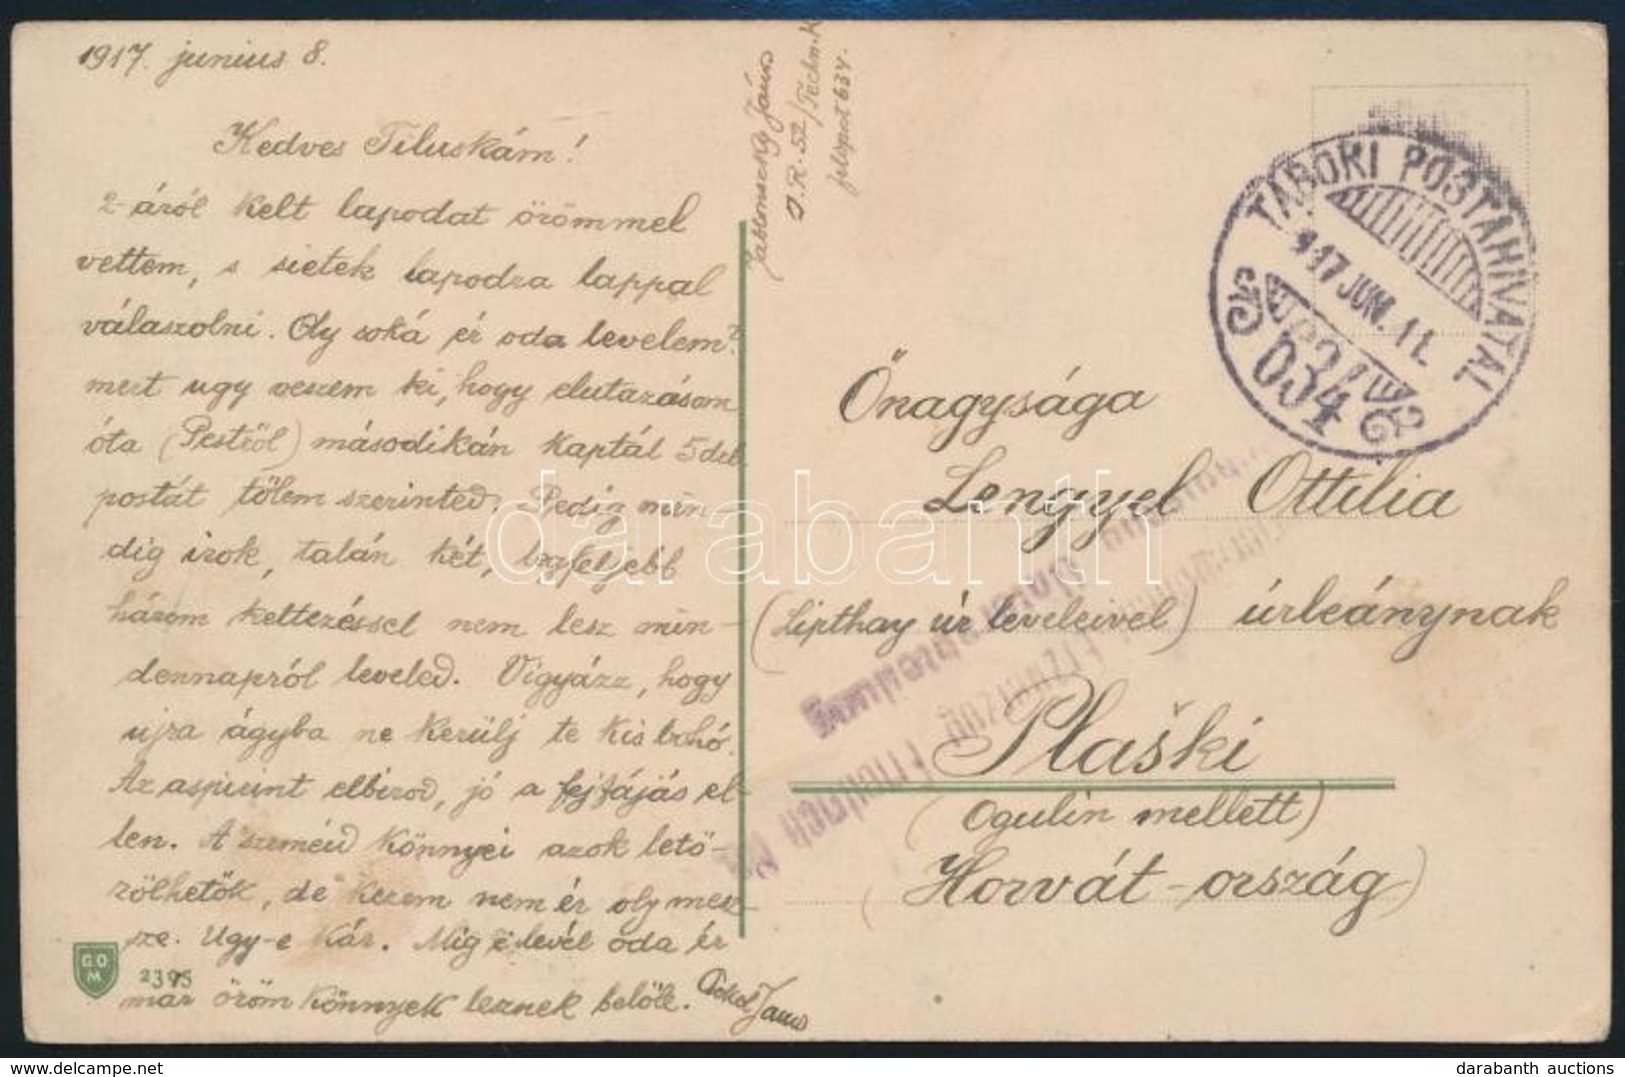 1917. junius 8.
Kedves Tiluskám!
2-áról kelt lapodat örömmel
vettem, s sietek lapodra lappal
válaszolni. Oly soká ér oda levelem?
mert ugy veszem ki, hogy elutazásom
óta (Pestről) másodikán kaptál 5del
postát tőlem szerinted. Pedig min-
dig irok, talán két, legfeljebb
három keltezéssel nem lesz min-
dennapról leveled. Vigyázz, hogy
ujra ágyba ne kerülj te kis
Az aspirint elbirod, jó a fejfájás el-
len. A szemeid könnyei azok letö-
rölhetők, de kezem nem ér oly mesz-
sze. Ugy-e kár. Mig e levél oda ér
már öröm könnyek lesznek belőle. János
G.O.
M
2395
Jablonszky János
I. R. 52/Techn. K
634.
TÁBORI POSTAHIVATAL
917 JUN. 11.
634
Őnagysága
Lengyel Ottilia
(Lipthay úr leveleivel) úrleánynak
Plaški
(Ogulin mellett)
(Horvát-ország)
darabanth
darabanth auctions